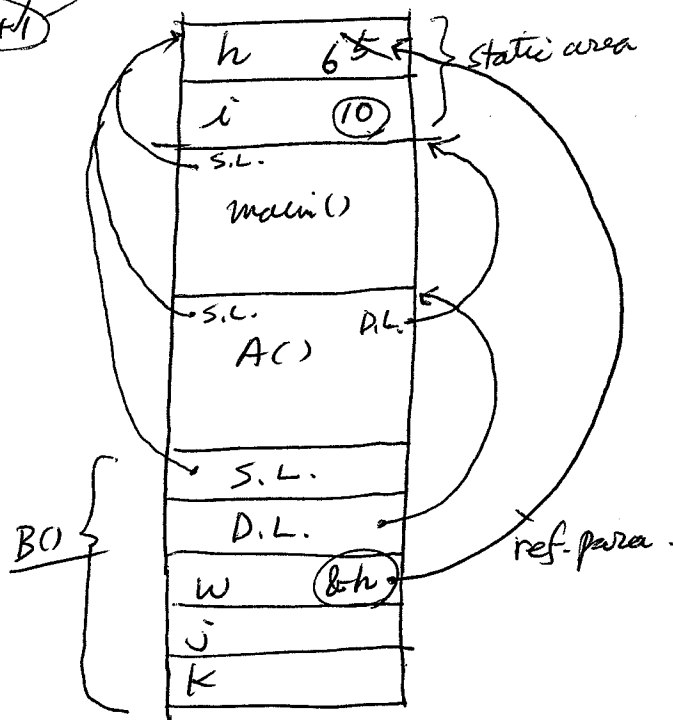 +1
h 6 5 static area
i 10
S.L.
main()
S.L. D.L.
A()
S.L.
B() D.L.
w &h ref-para.
j
K